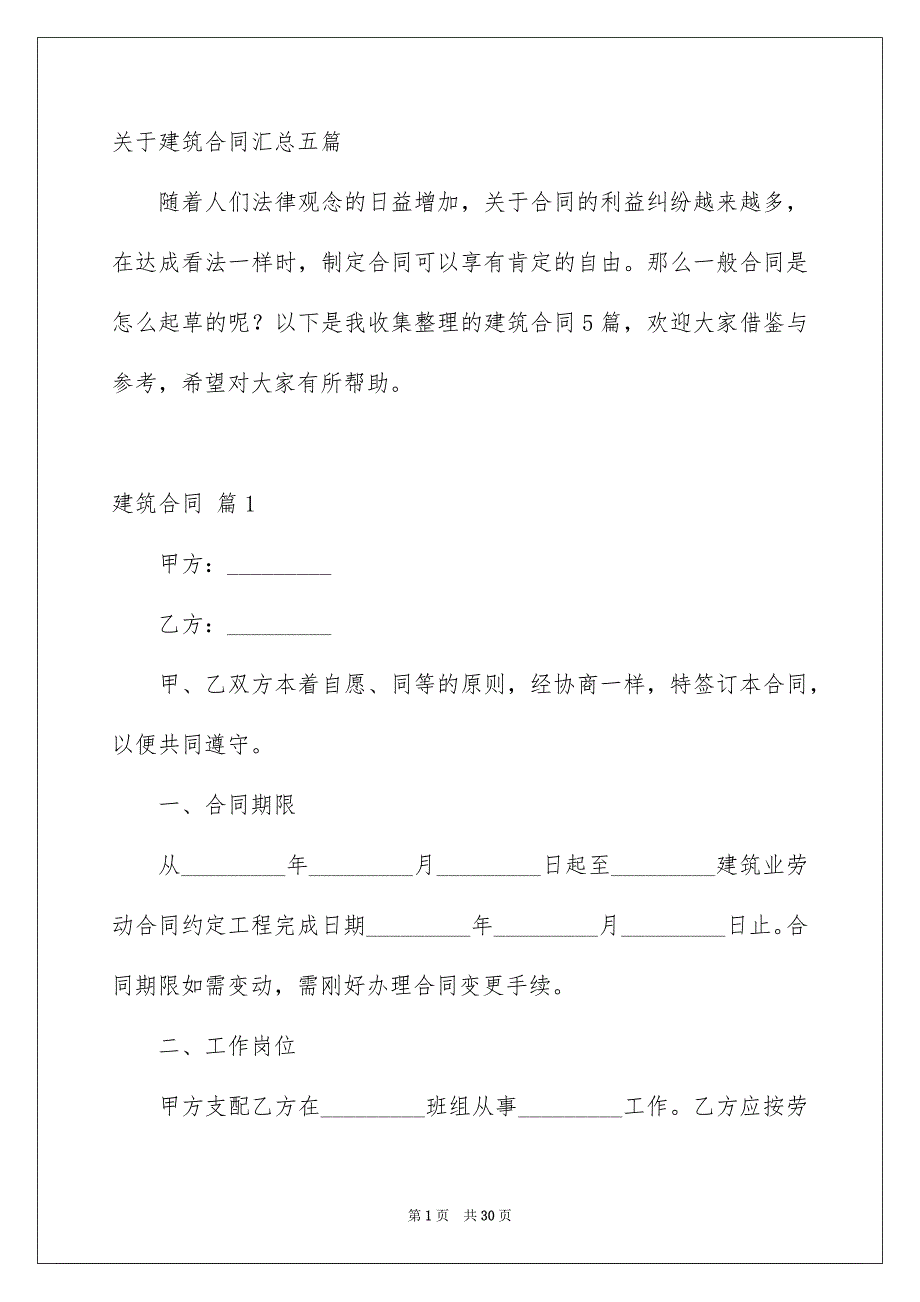 关于建筑合同汇总五篇
随着人们法律观念的日益增加，关于合同的利益纠纷越来越多，
在达成看法一样时，制定合同可以享有肯定的自由。那么一般合同是
怎么起草的呢？以下是我收集整理的建筑合同5篇，欢迎大家借鉴与
参考，希望对大家有所帮助。
建筑合同 篇1
甲方：_________
乙方：_________
甲、乙双方本着自愿、同等的原则，经协商一样，特签订本合同，
以便共同遵守。
一、合同期限
从_________年_________月_________日起至_________建筑业劳
动合同约定工程完成日期_________年_________月_________日止。合
同期限如需变动，需刚好办理合同变更手续。
二、工作岗位
甲方支配乙方在_________班组从事_________工作。乙方应按劳
第1页 共30页